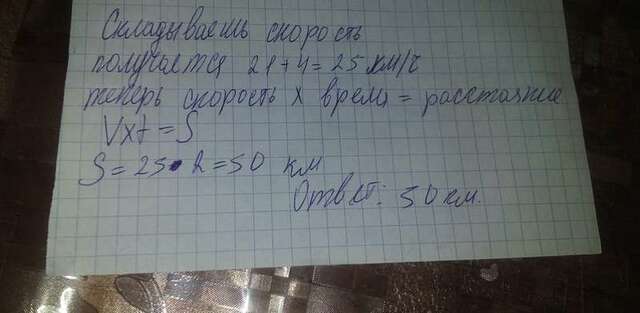 Складываешь скорость
получается 21+4=25 км/ч
теперь скорость х время = расстояние
Vxt=S
S=25·2=50 км
Ответ: 50 км.